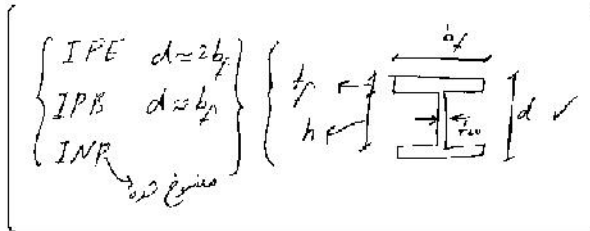 IPE d≈2b_f
IPB d≈b_f
INP
منسوخ شده
b_f
t_f
h
t_w
d ✓